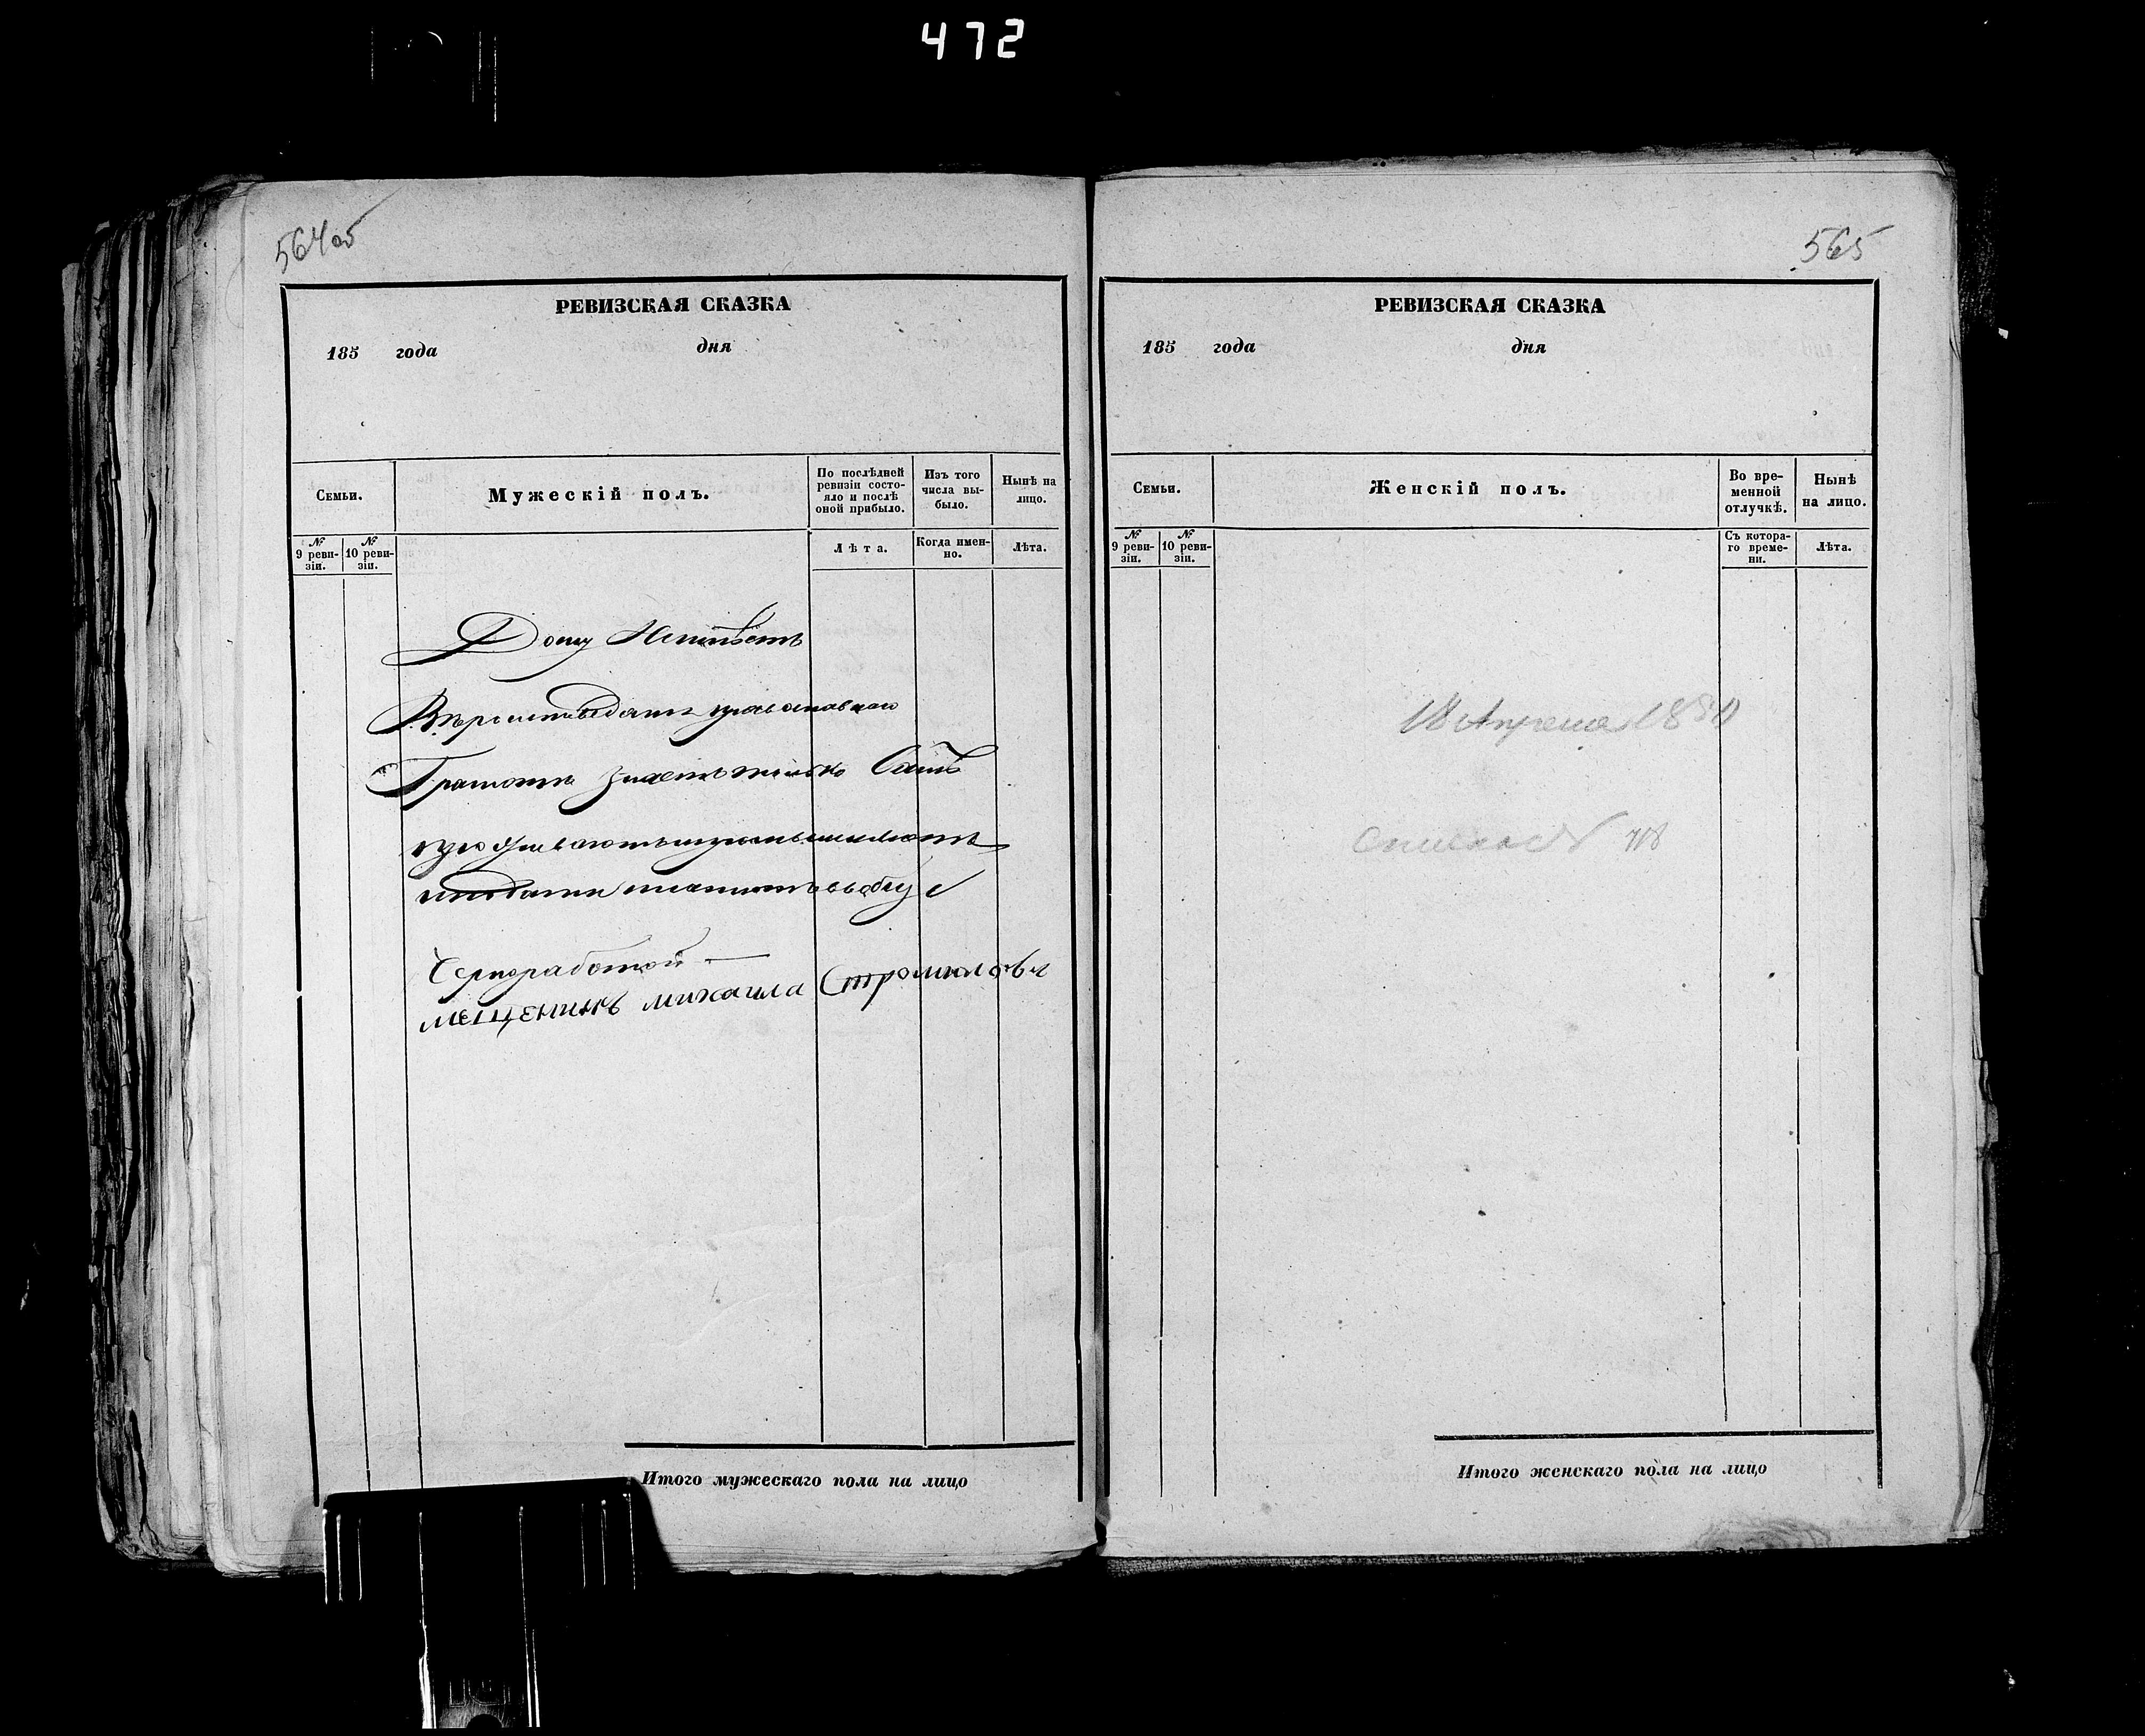 472
564об
РЕВИЗСКАЯ СКАЗКА
185 года дня
Семьи.
Мужескій полъ.
По послѣдней ревизіи состо-
яло и послѣ оной прибыло.
Изъ того числа вы-
было.
Нынѣ на лицо.
№ 9 реви-
зіи.
№ 10 реви-
зіи.
Лѣта.
Когда имен-
но.
Лѣта.
Дому Неимѣетъ
Вѣроисповеданія православнаго
Грамотѣ знаетъ только Самъ
Чернработой —
мещенинъ михаила Стромиловъ
Итого мужескаго пола на лицо
565
РЕВИЗСКАЯ СКАЗКА
185 года дня
Семьи.
Женскій полъ.
Во вре-
менной отлучкѣ.
Нынѣ на лицо.
№ 9 реви-
зіи.
№ 10 реви-
зіи.
Съ котора-
го време-
ни.
Лѣта.
18 Апреля 18
Итого женскаго пола на лицо